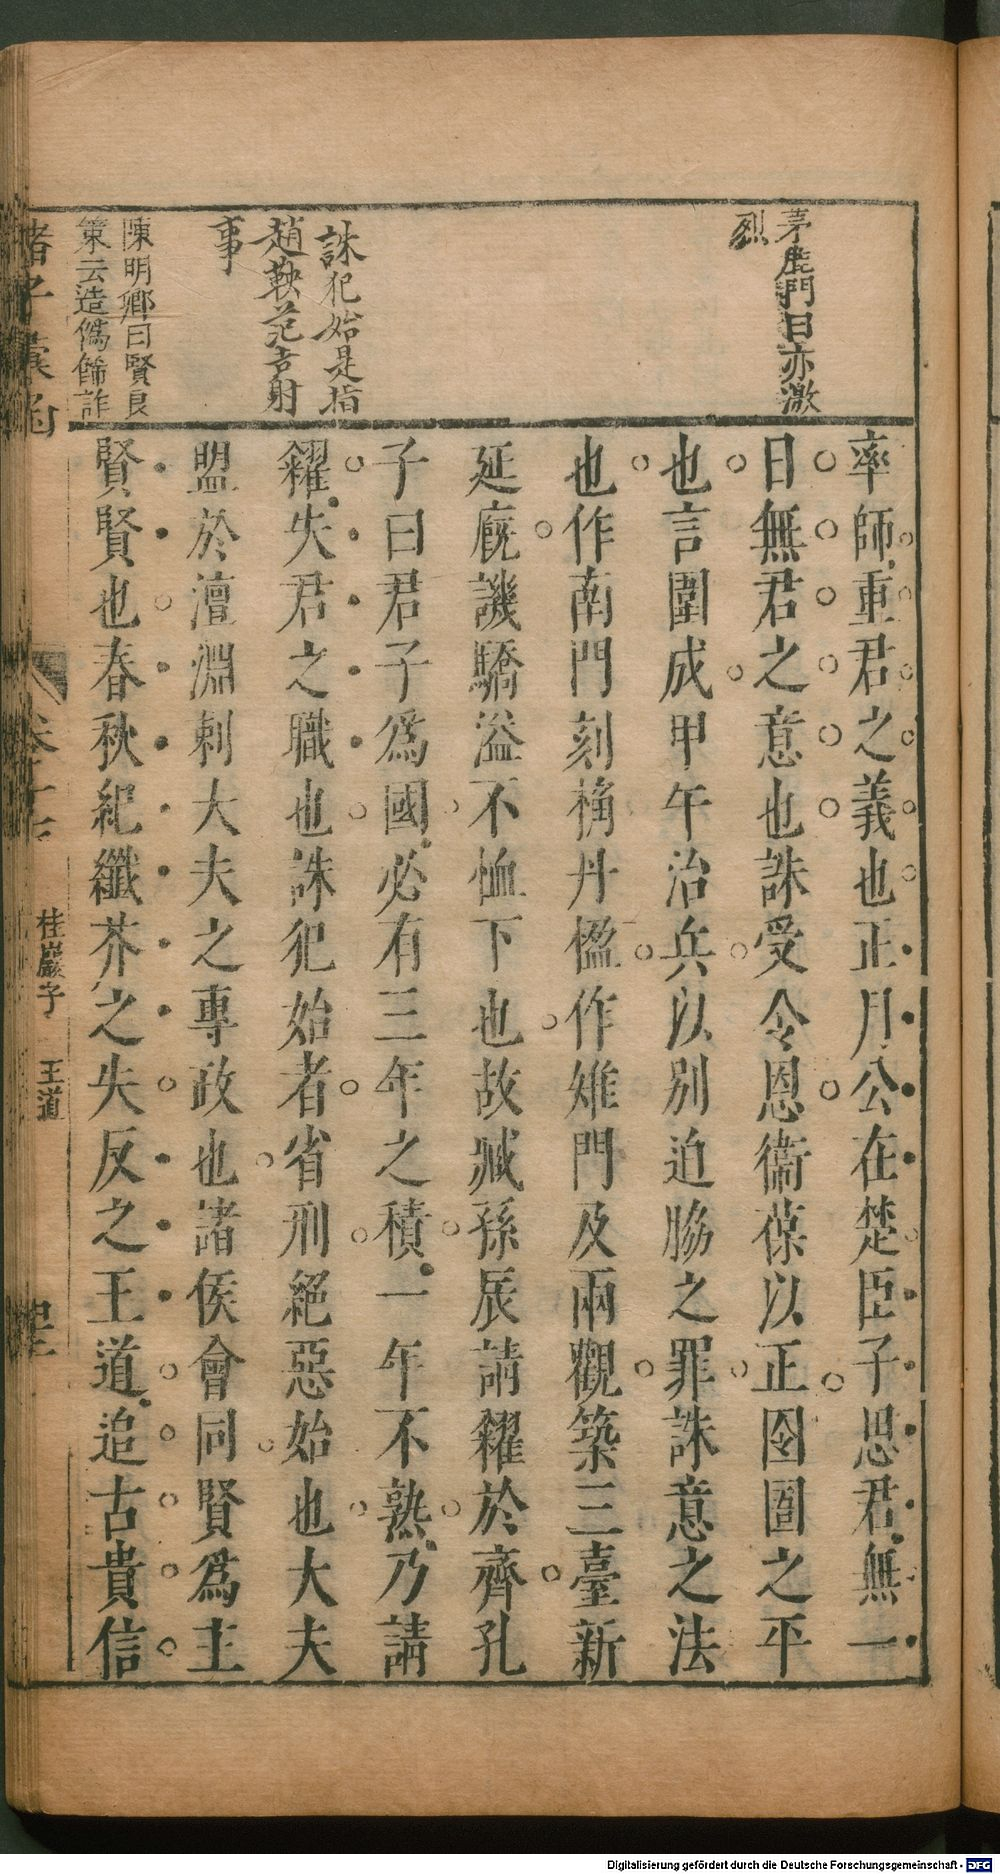 茅鹿門曰亦激
烈
誅犯始是指
趙鞅范吉射
事
陳明卿曰賢良
策云造僞飾詐
率師重君之義也正月公在楚臣子思君無一
日無君之意也誅受令恩衞葆以正囹圄之平
也言圍成甲午治兵以別迫脇之罪誅意之法
也作南門刻桷丹楹作雉門及兩觀築三臺新
延廄譏驕溢不恤下也故臧孫辰請糴於齊孔
子曰君子爲國必有三年之積一年不熟乃請
糴失君之職也誅犯始者省刑絕惡始也大夫
盟於澶淵刺大夫之專政也諸侯會同賢爲主
賢賢也春秋紀纖芥之失反之王道追古貴信
諸子彙函
卷十七
桂巖子 王道
Digitalisierung gefördert durch die Deutsche Forschungsgemeinschaft - DFG